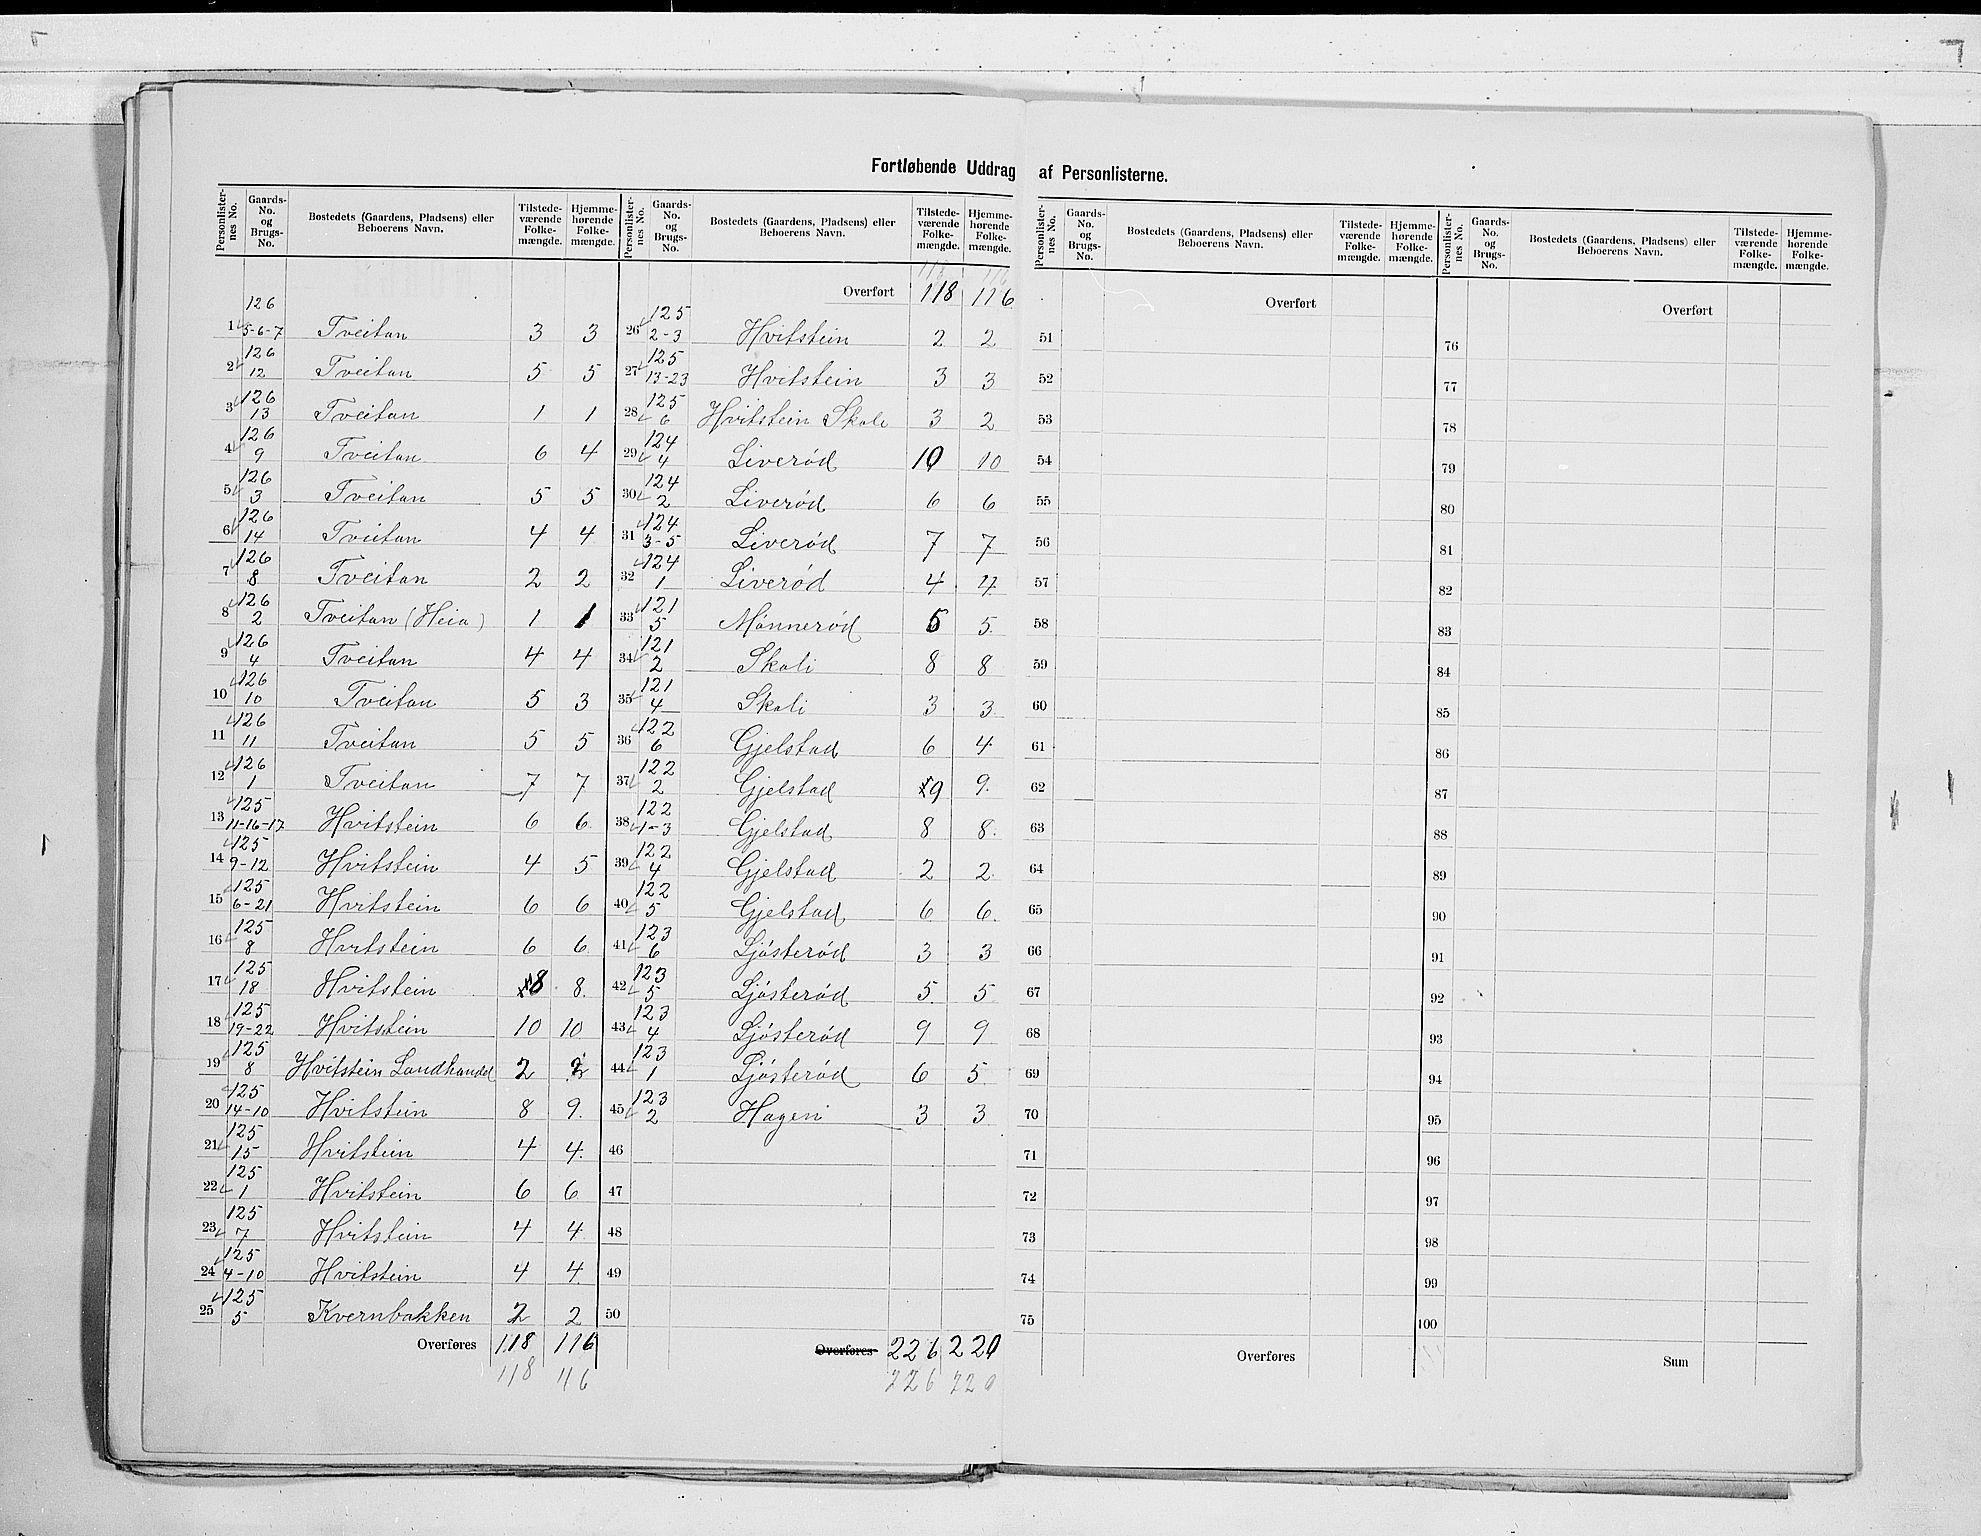 Fortløbende Uddrag af Personlisterne.
Personlister-nes No. Gaards-No. og Brugs-No. Bostedets (Gaardens, Pladsens) eller Beboerens Navn. Tilstede-værende Folke-mængde. Hjemme-hørende Folke-mængde.
1 126 5-6-7 Tveitan 3 3
2 126 12 Tveitan 5 5
3 126 13 Tveitan 1 1
4 126 9 Tveitan 6 4
5 126 3 Tveitan 5 5
6 126 14 Tveitan 4 4
7 126 8 Tveitan 2 2
8 126 2 Tveitan (Heia) 1 1
9 126 4 Tveitan 4 4
10 126 10 Tveitan 5 3
11 126 11 Tveitan 5 5
12 126 1 Tveitan 7 7
13 125 11-16-17 Hvitstein 6 6
14 125 9-12 Hvitstein 4 5
15 125 6-21 Hvitstein 6 6
16 125 8 Hvitstein 6 6
17 125 18 Hvitstein 8 8
18 125 19-22 Hvitstein 10 10
19 125 8 Hvitstein Landhandel 2 2
20 125 14-10 Hvitstein 8 9
21 125 15 Hvitstein 4 4
22 125 1 Hvitstein 6 6
23 125 7 Hvitstein 4 4
24 125 4-10 Hvitstein 4 4
25 125 5 Kvernbakken 2 2
Overføres 118 116
118 116
Personlister-nes No. Gaards-No. og Brugs-No. Bostedets (Gaardens, Pladsens) eller Beboerens Navn. Tilstede-værende Folke-mængde. Hjemme-hørende Folke-mængde.
118 116
Overført 118 116
26 125 2-3 Hvitstein 2 2
27 125 13-23 Hvitstein 3 3
28 125 6 Hvitstein Skole 3 2
29 124 4 Liverød 10 10
30 124 2 Liverød 6 6
31 124 3-5 Liverød 7 7
32 124 1 Liverød 4 4
33 121 5 Mønnerød 5 5
34 121 2 Skoli 8 8
35 121 4 Skoli 3 3
36 122 6 Gjelstad 6 4
37 122 2 Gjelstad 9 9
38 122 1-3 Gjelstad 8 8
39 122 4 Gjelstad 2 2
40 122 5 Gjelstad 6 6
41 123 6 Ljøsterød 3 3
42 123 5 Ljøsterød 5 5
43 123 4 Ljøsterød 9 9
44 123 1 Ljøsterød 6 5
45 123 2 Hagen 3 3
46
47
48
49
50
Overføres 226 220
226 220
Personlister-nes No. Gaards-No. og Brugs-No. Bostedets (Gaardens, Pladsens) eller Beboerens Navn. Tilstede-værende Folke-mængde. Hjemme-hørende Folke-mængde.
Overført
51
52
53
54
55
56
57
58
59
60
61
62
63
64
65
66
67
68
69
70
71
72
73
74
75
Overføres
Personlister-nes No. Gaards-No. og Brugs-No. Bostedets (Gaardens, Pladsens) eller Beboerens Navn. Tilstede-værende Folke-mængde. Hjemme-hørende Folke-mængde.
Overført
76
77
78
79
80
81
82
83
84
85
86
87
88
89
90
91
92
93
94
95
96
97
98
99
100
Sum